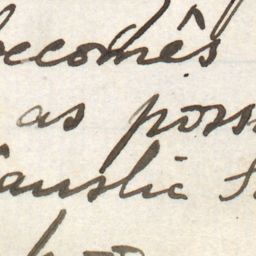 becomes
as poss
caustic